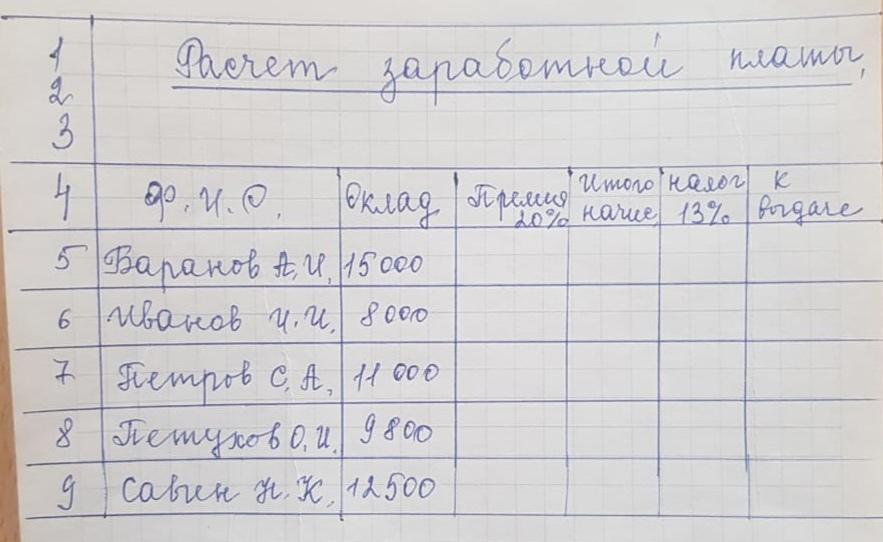 1 Расчет заработной платы
2
3
4 Ф.И.О. Оклад Премия 20% Итого начис. налог 13% к выдаче
5 Баранов А.И. 15000
6 Иванов И.И. 8000
7 Петров С.А. 11000
8 Петухов О.И. 9800
9 Савин Н.К. 12500